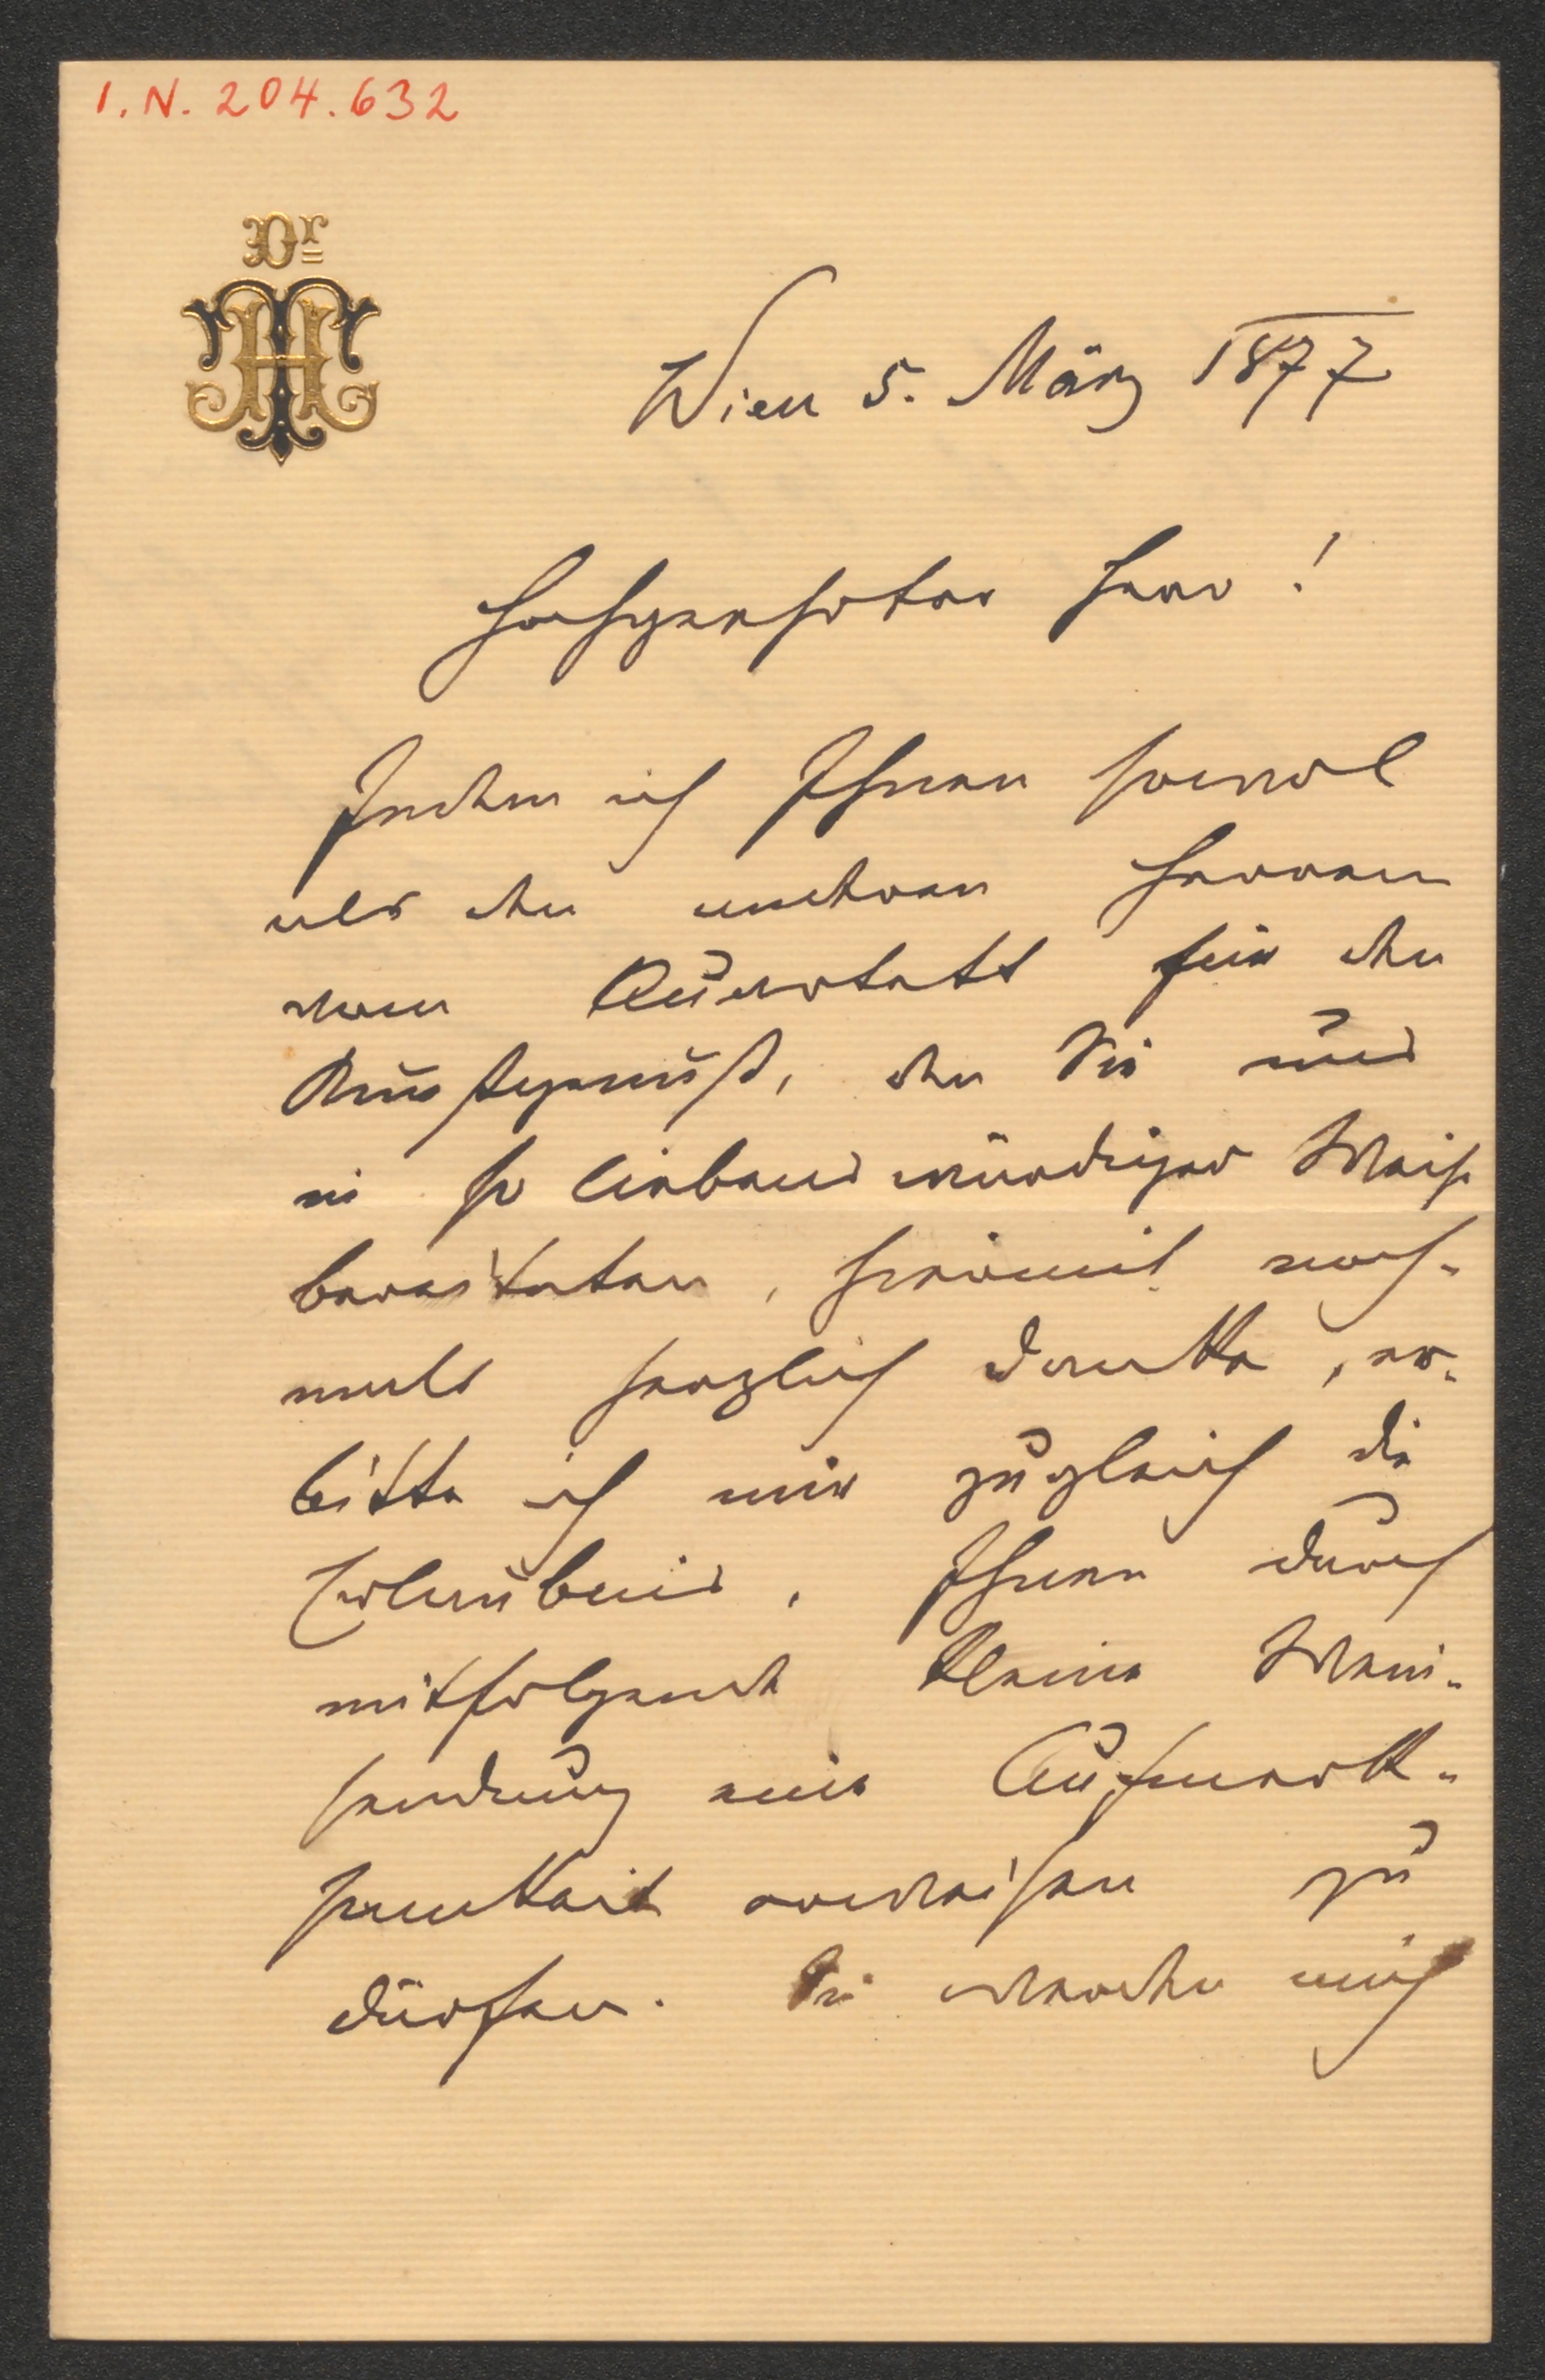 I.N. 204.632
Dr
TH
Wien 5. März 1877
Hochgeehrter Herr!
Indem ich Ihnen sowol
als den andren Herren
vom Quartett für den
Kunstgenuß, den Sie uns
in so liebenswürdiger Weise
bereiteten, hiermit noch-
mals herzlich danke, er-
bitte ich mir zugleich die
Erlaubnis, Ihnen durch
mitfolgende kleine Wein-
sendung eine Aufmerk-
samkeit erweisen zu
dürfen. Sie werden mich